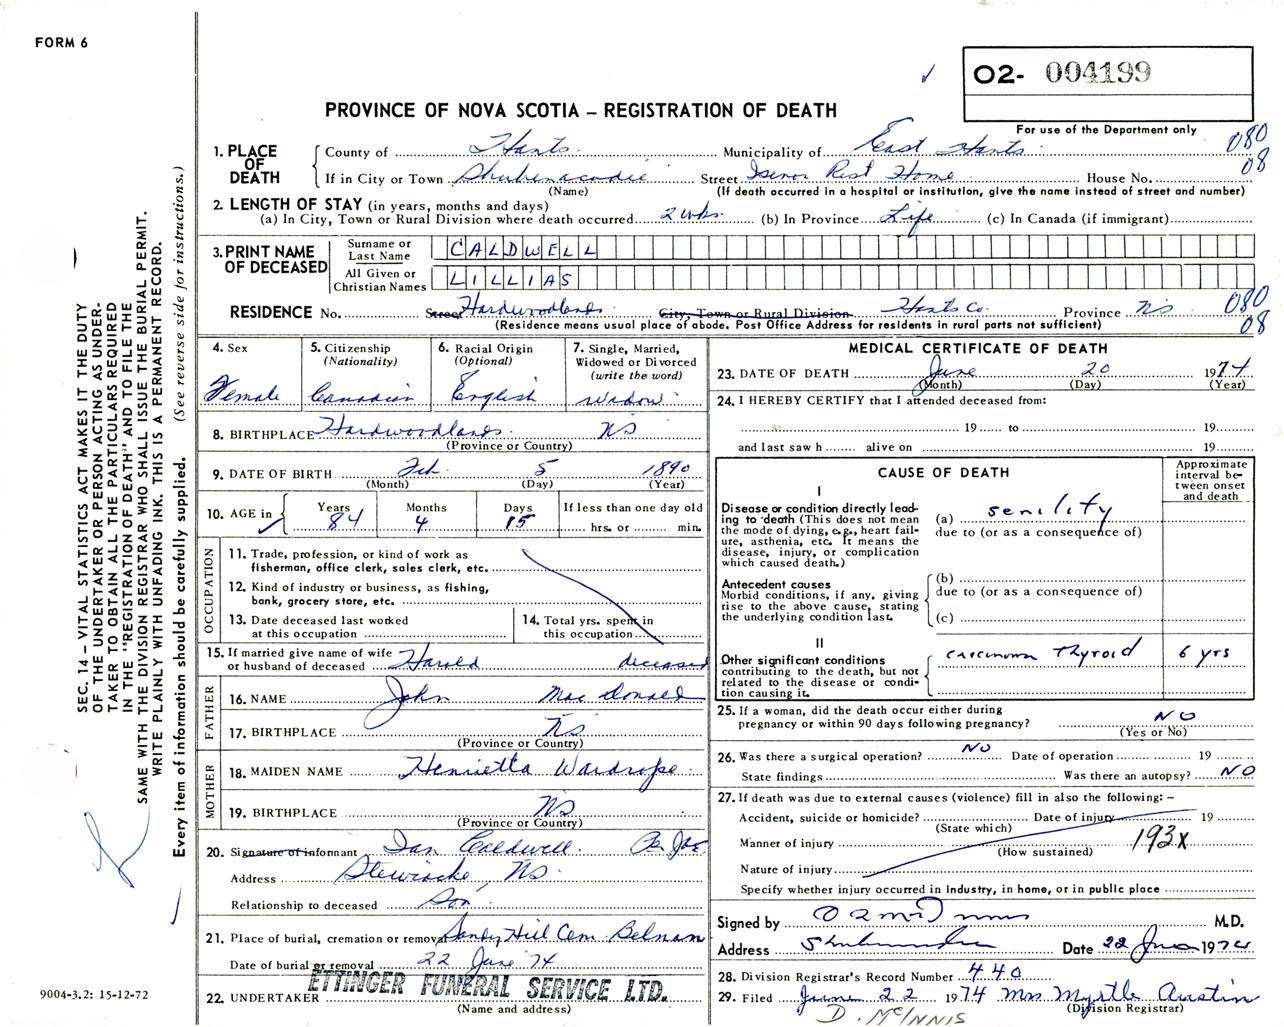 FORM 6
O2- 004199
PROVINCE OF NOVA SCOTIA – REGISTRATION OF DEATH
For use of the Department only
1. PLACE OF DEATH
County of Hants Municipality of East Hants 080
If in City or Town Shubenacadie Street Isenor Rest Home House No. 08
(Name) (If death occurred in a hospital or institution, give the name instead of street and number)
2. LENGTH OF STAY (in years, months and days)
(a) In City, Town or Rural Division where death occurred 2 wks (b) In Province Life (c) In Canada (if immigrant)
3. PRINT NAME OF DECEASED
Surname or Last Name CALDWELL
All Given or Christian Names LILLIAS
RESIDENCE No. Street Hardwoodlands City, Town or Rural Division Hants Co. Province NS 080
(Residence means usual place of abode. Post Office Address for residents in rural parts not sufficient) 08
4. Sex
Female
5. Citizenship
(Nationality)
Canadian
6. Racial Origin
(Optional)
English
7. Single, Married,
Widowed or Divorced
(write the word)
widow
8. BIRTHPLACE Hardwoodlands NS
(Province or Country)
9. DATE OF BIRTH Feb 5 1890
(Month) (Day) (Year)
10. AGE in
Years 84
Months 4
Days 15
If less than one day old
hrs. or min.
OCCUPATION
11. Trade, profession, or kind of work as
fisherman, office clerk, sales clerk, etc.
12. Kind of industry or business, as fishing,
bank, grocery store, etc.
13. Date deceased last worked
at this occupation
14. Total yrs. spent in
this occupation
15. If married give name of wife
or husband of deceased Harold deceased
FATHER
16. NAME John Mac Donald
17. BIRTHPLACE NS
(Province or Country)
MOTHER
18. MAIDEN NAME Henrietta Wardrope
19. BIRTHPLACE NS
(Province or Country)
20. Signature of informant Ian Caldwell
Address Stewiacke, NS
Relationship to deceased Son
21. Place of burial, cremation or removal Sandy Hill Cem Belnan
Date of burial or removal 22 June 74
22. UNDERTAKER ETTINGER FUNERAL SERVICE LTD.
(Name and address)
MEDICAL CERTIFICATE OF DEATH
23. DATE OF DEATH June 20 1974
(Month) (Day) (Year)
24. I HEREBY CERTIFY that I attended deceased from:
19 to 19
and last saw h alive on 19
CAUSE OF DEATH
Approximate
interval be-
tween onset
and death
I
Disease or condition directly lead-
ing to death (This does not mean
the mode of dying, e.g., heart fail-
ure, asthenia, etc. It means the
disease, injury, or complication
which caused death.)
(a) senility
due to (or as a consequence of)
Antecedent causes
Morbid conditions, if any, giving
rise to the above cause, stating
the underlying condition last.
(b)
due to (or as a consequence of)
(c)
II
Other significant conditions
contributing to the death, but not
related to the disease or condi-
tion causing it.
carcinoma Thyroid 6 yrs
25. If a woman, did the death occur either during
pregnancy or within 90 days following pregnancy? NO
(Yes or No)
26. Was there a surgical operation? NO Date of operation 19
State findings Was there an autopsy? NO
27. If death was due to external causes (violence) fill in also the following: –
Accident, suicide or homicide? Date of injury 19
(State which)
Manner of injury 193X
(How sustained)
Nature of injury
Specify whether injury occurred in industry, in home, or in public place
Signed by M.D.
Address Date 22 June 1974
28. Division Registrar's Record Number 440
29. Filed June 22 1974 Mrs Myrtle Austin
(Division Registrar)
D. McINNIS
SEC. 14 – VITAL STATISTICS ACT MAKES IT THE DUTY
OF THE UNDERTAKER OR PERSON ACTING AS UNDER-
TAKER TO OBTAIN ALL THE PARTICULARS REQUIRED
IN THE "REGISTRATION OF DEATH" AND TO FILE THE
SAME WITH THE DIVISION REGISTRAR WHO SHALL ISSUE THE BURIAL PERMIT.
WRITE PLAINLY WITH UNFADING INK. THIS IS A PERMANENT RECORD.
Every item of information should be carefully supplied. (See reverse side for instructions.)
9004-3.2: 15-12-72